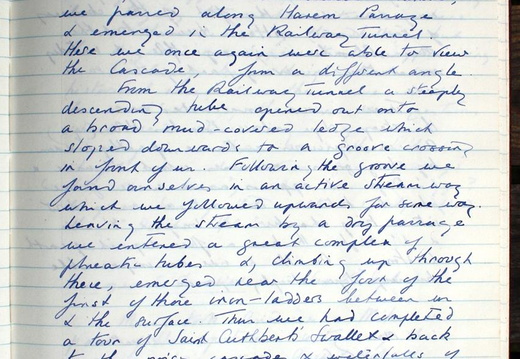 we passed along Harem Passage
& emerged in the Railway Tunnel.
Here we once again were able to view
the Cascade, from a different angle.
From the Railway Tunnel a steeply
descending tube opened out onto
a broad mud-covered ledge which
sloped downwards to a groove crossing
in front of us. Following the groove we
found ourselves in an active stream way
which we followed upwards for some way.
Leaving the stream by a dry passage
we entered a great complex of
phreatic tubes &, climbing up through
these, emerged near the foot of the
first of those iron-ladders between us
& the surface. Thus we had completed
a tour of Saint Cuthbert's Swallet & back
to the main cascade & waterfalls of